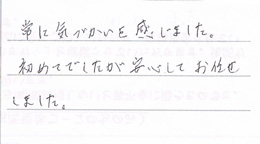 常に気づかいを感じました。
初めてでしたが安心してお任せ
しました。